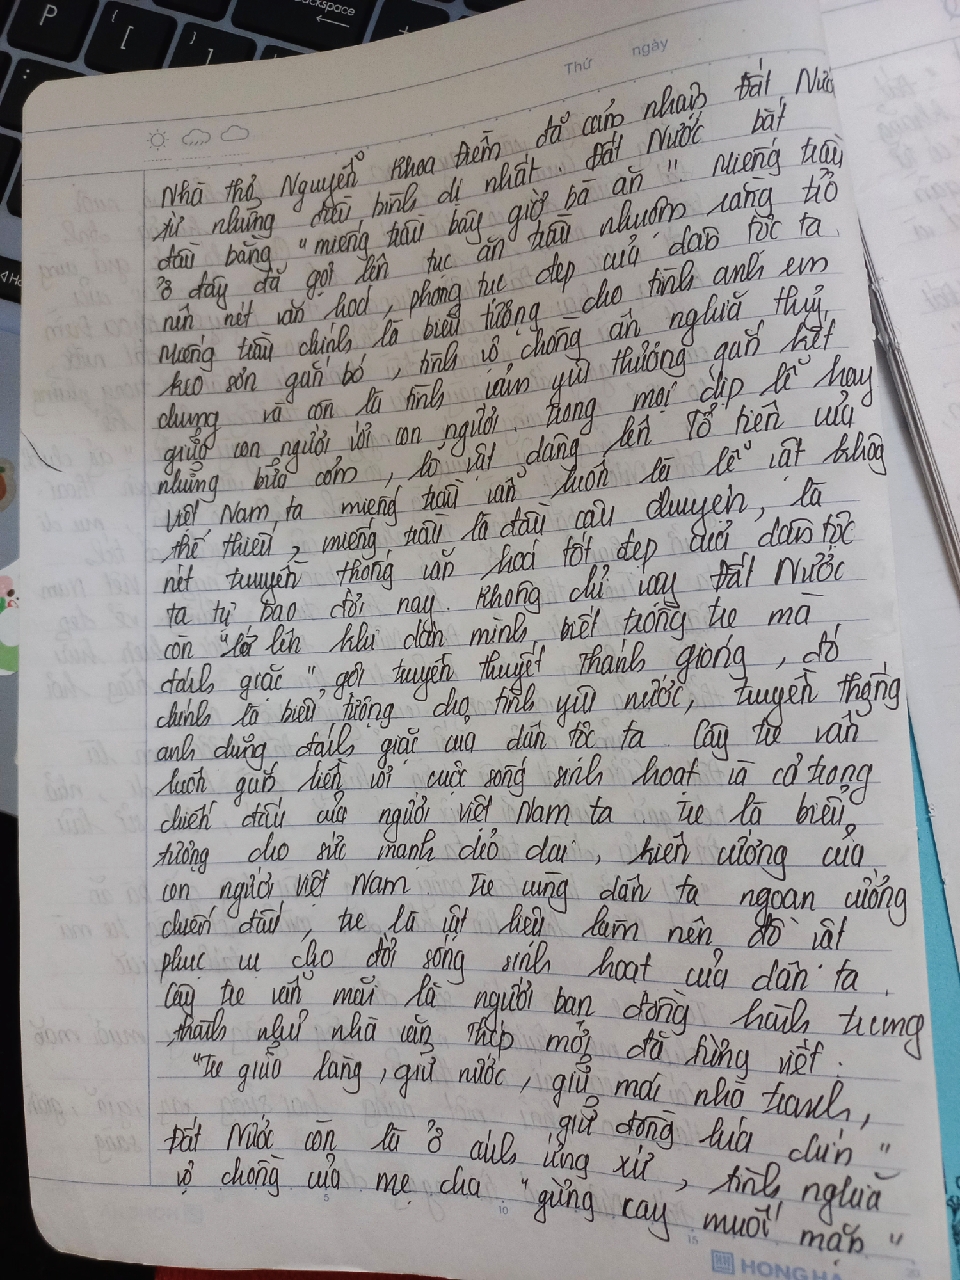 P
[
]
backspace
Thứ ngày
Nhà thơ Nguyễn Khoa Điềm đã cảm nhận Đất Nước
từ những điều bình dị nhất. Đất Nước bắt
đầu bằng "miếng trầu bây giờ bà ăn". Miếng trầu
ở đây đã gợi lên tục ăn trầu nhuộm răng
nên nét văn hoá, phong tục đẹp của dân tộc ta.
Miếng trầu chính là biểu tượng cho tình anh em
keo sơn gắn bó, tình vợ chồng ân nghĩa thuỷ
chung và còn là tình cảm yêu thương gắn kết
giữa con người với con người. trong mọi dịp lễ hay
những bữa cơm, là vật dâng lên Tổ tiên của
Việt Nam ta miếng trầu vẫn luôn là lễ vật không
thể thiếu, miếng trầu là đầu câu chuyện, là
nét truyền thống văn hoá tốt đẹp của dân tộc
ta tự bao đời nay. Không chỉ vậy Đất Nước
còn "lớn lên khi dân mình biết trồng tre mà
đánh giặc" gợi truyền thuyết Thánh gióng, đó
chính là biểu tượng cho tình yêu nước, truyền thống
anh dũng đánh giặc của dân tộc ta. Cây tre vẫn
luôn gắn liền với cuộc sống sinh hoạt và cả trong
chiến đấu của người việt Nam ta Tre là biểu
tượng cho sức mạnh dẻo dai, kiên cường của
con người việt Nam Tre cùng dân ta ngoan cường
chiến đấu, tre là vật liệu làm nên đồ vật
phục vụ cho đời sống sinh hoạt của dân ta.
Cây tre vẫn mãi là người bạn đồng hành trung
thành như nhà văn Thép mới đã từng viết:
"Tre giữ làng, giữ nước, giữ mái nhà tranh,
giữ đồng lúa chín"
Đất Nước còn là ở cách ứng xử, tình nghĩa
vợ chồng của mẹ cha "gừng cay muối mặn"
5 10 15
HONG HA